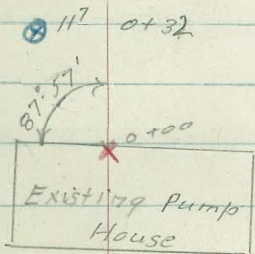 11⁷ 0+32
87°57'
0+00
Existing Pump
House